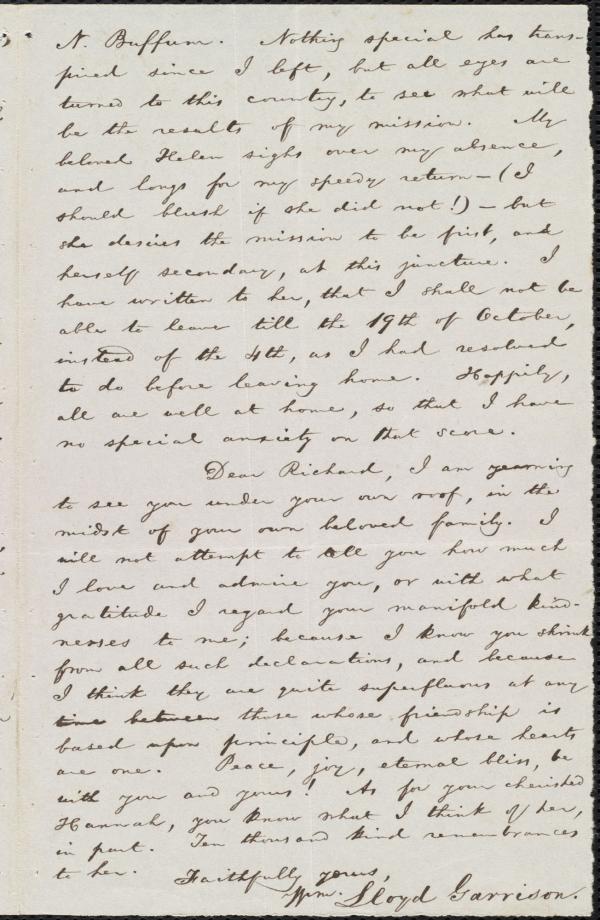 N. Buffum. Nothing special has trans-
pired since I left, but all eyes are
turned to this country, to see what will
be the results of my mission. My
beloved Helen sighs over my absence,
and longs for my speedy return—(I
should blush if she did not!)—but
she desires the mission to be first, and
herself secondary, at this juncture. I
have written to her, that I shall not be
able to leave till the 19th of October,
instead of the 4th, as I had resolved
to do before leaving home. Happily,
all are well at home, so that I have
no special anxiety on that score.
Dear Richard, I am yearning
to see you under your own roof, in the
midst of your own beloved family. I
will not attempt to tell you how much
I love and admire you, or with what
gratitude I regard your manifold kind-
nesses to me; because I know you shrink
from all such declarations, and because
I think they are quite superfluous at any
time between those whose friendship is
based upon principle, and whose hearts
are one. Peace, joy, eternal bliss, be
with you and yours! As for your cherished
Hannah, you know what I think of her,
in part. Ten thousand kind remembrances
to her. Faithfully yours,
Wm. Lloyd Garrison.